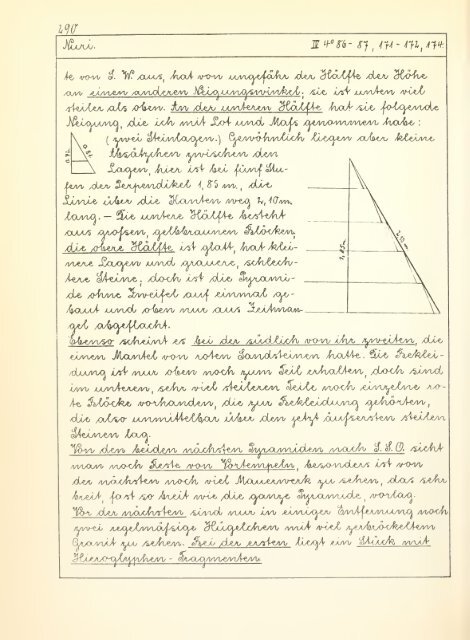 290
Nuri. IV 4° 86-87, 171-172, 174.
te von S. W. aus, hat von ungefähr der Hälfte der Höhe
an einen anderen Neigungswinkel; sie ist unten viel
steiler als oben. In der unteren Hälfte hat sie folgende
Neigung, die ich mit Lot und Maſs genommen habe:
(zwei Steinlagen.) Gewöhnlich liegen aber kleine
Absätzchen zwischen den
Lagen, hier ist bei fünf Stu-
fen der Perpendikel 1,85 m., die
Linie über die Kanten weg 2,10 m
lang. — Die untere Hälfte besteht
aus groſsen, gelbbraunen Blöcken,
die obere Hälfte ist glatt, hat klei-
nere Lagen und grauere, schlech-
tere Steine; doch ist die Pyrami-
de ohne Zweifel auf einmal ge-
baut und oben nur aus Zeitman-
gel abgeflacht.
Ebenso scheint es bei der südlich von ihr zweiten, die
einen Mantel von roten Sandsteinen hatte. Die Beklei-
dung ist nur oben noch zum Teil erhalten, doch sind
im unteren, sehr viel steileren Teile noch einzelne ro-
te Blöcke vorhanden, die zur Bekleidung gehörten,
die also unmittelbar über den jetzt äuſsersten steilen
Steinen lag.
Von den beiden nächsten Pyramiden nach S.S.O. sieht
man noch Reste von Vortempeln, besonders ist von
der nächsten noch viel Mauerwerk zu sehen, das sehr
breit, fast so breit wie die ganze Pyramide, vorlag.
Vor der nächsten sind nur in einiger Entfernung noch
zwei regelmäſsige Hügelchen mit viel zerbröckeltem
Granit zu sehen. Bei der ersten liegt ein Stück mit
Hieroglyphen-Fragmenten